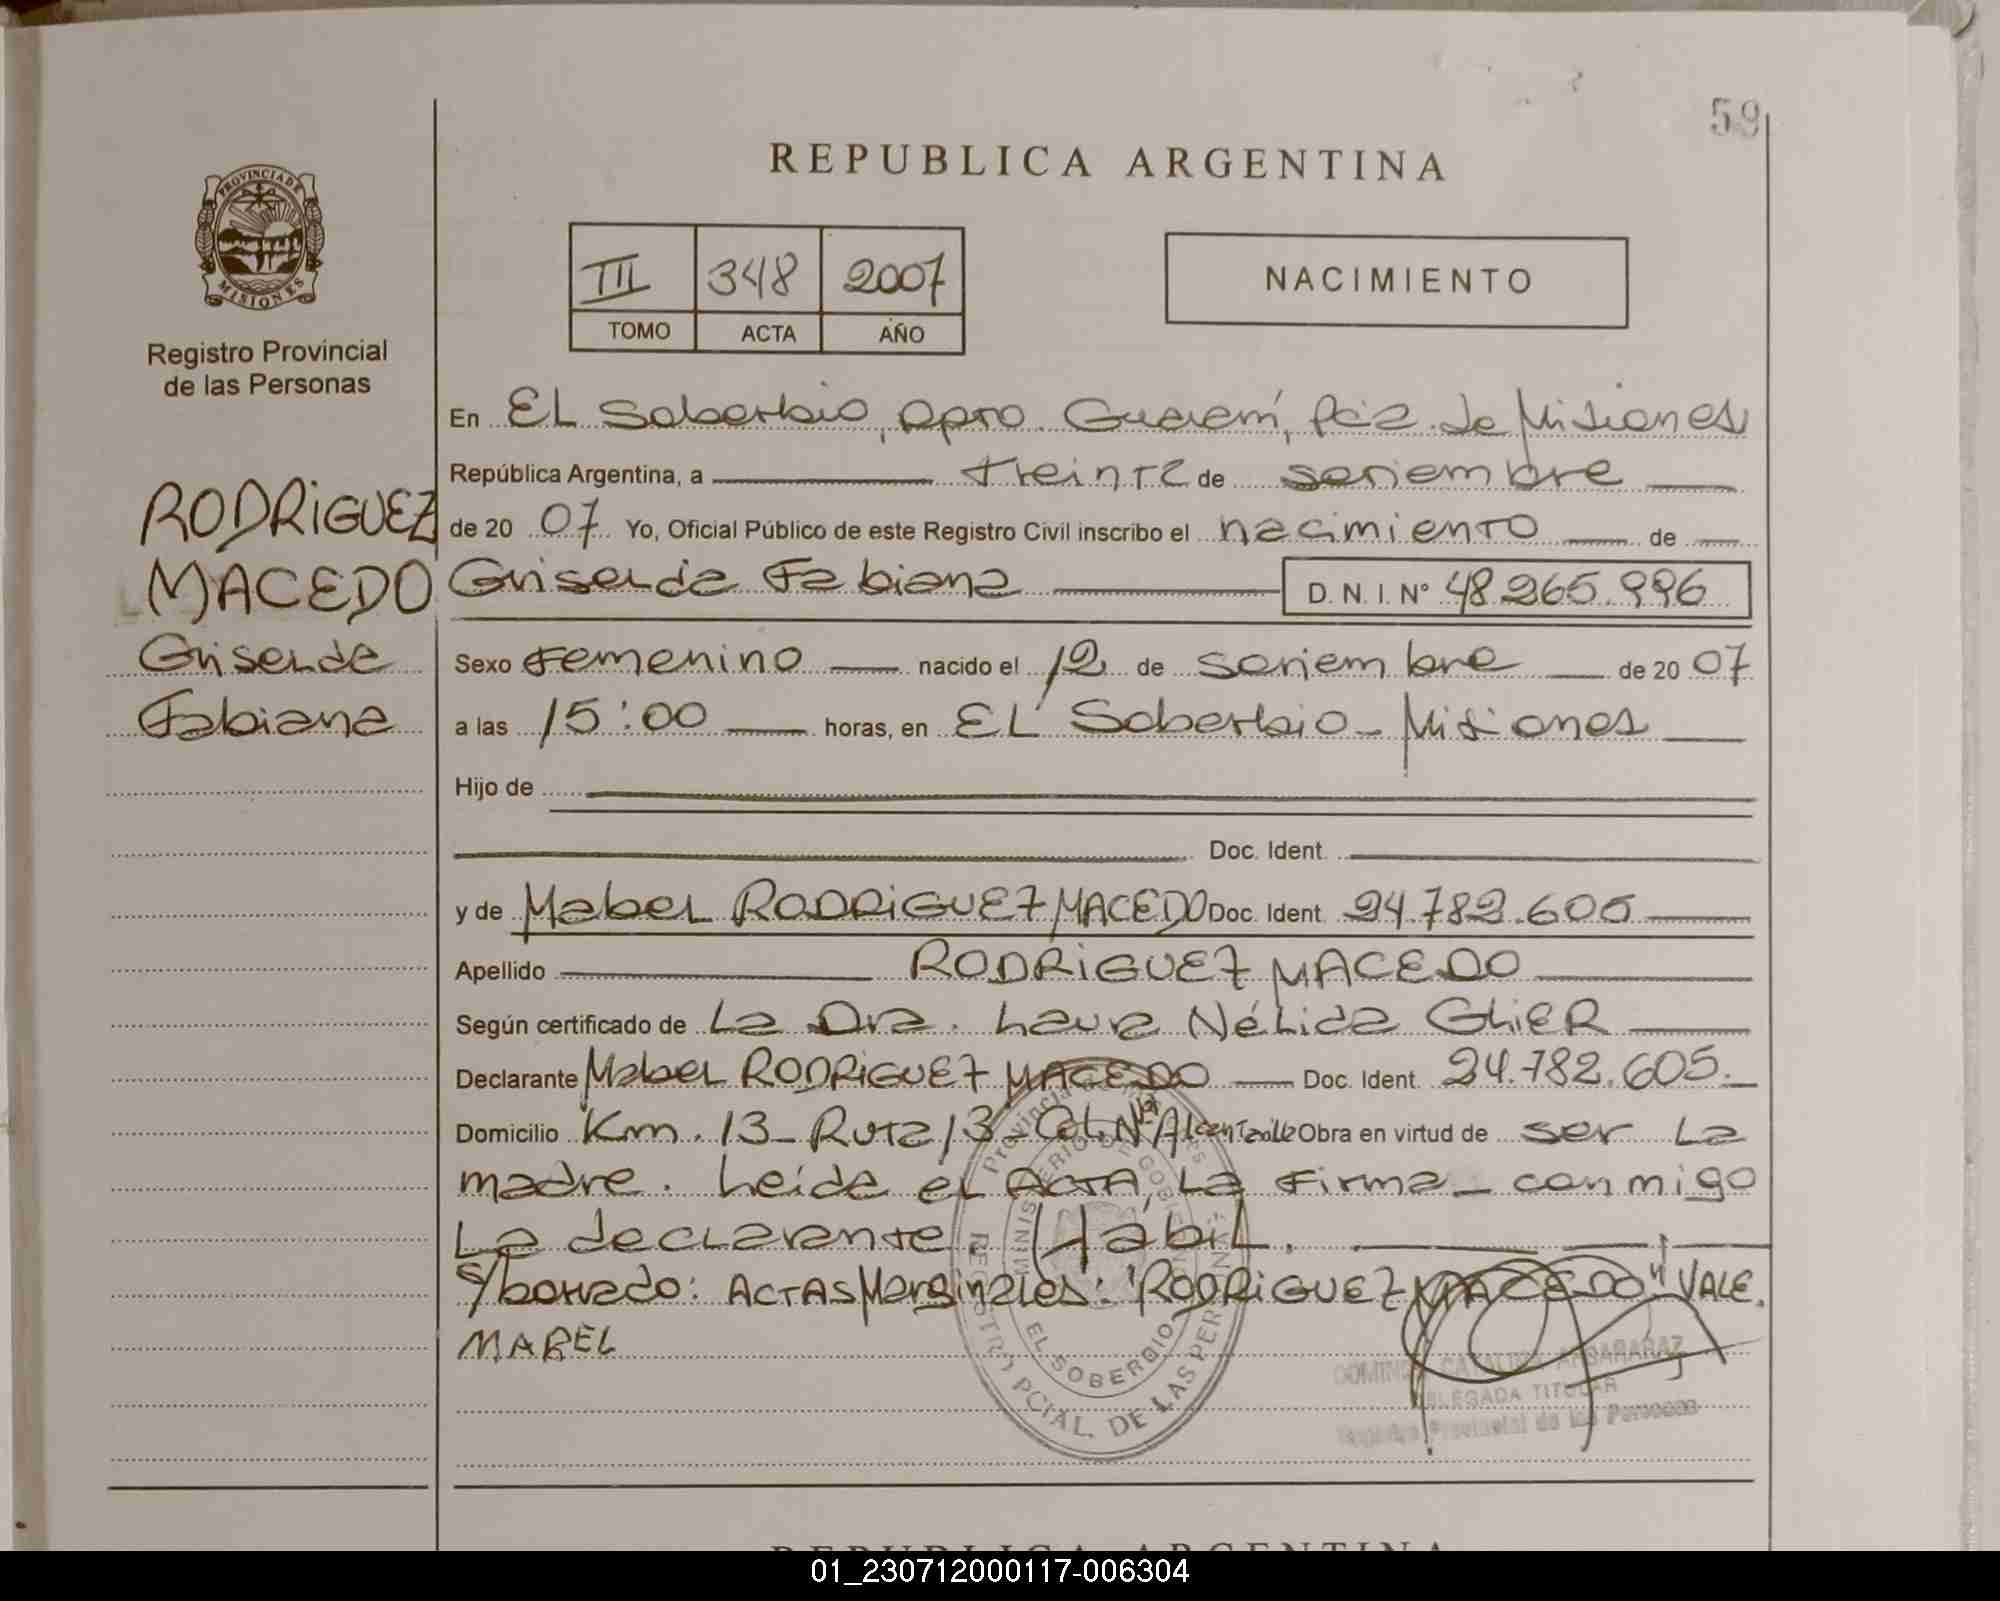 59
REPUBLICA ARGENTINA
PROVINCIA DE
MISIONES
III 348 2007
TOMO ACTA AÑO
NACIMIENTO
Registro Provincial
de las Personas
RODRiGUEZ
MACEDO
Griselda
Fabiana
En EL Soberbio, Dpto. Guaraní, Pcia. de Misiones
República Argentina, a treinta de setiembre
de 20 07 Yo, Oficial Público de este Registro Civil inscribo el nacimiento de
Griselda Fabiana D. N. I. N° 48.265.996
Sexo Femenino nacido el 12 de setiembre de 20 07
a las 15:00 horas, en EL Soberbio - Misiones
Hijo de
Doc. Ident.
y de Mabel RODRiGUEZ MACEDO Doc. Ident. 24.782.605
Apellido RODRiGUEZ MACEDO
Según certificado de La Dra. Laura Nélida GLiER
Declarante Mabel RODRiGUEZ MACEDO Doc. Ident. 24.782.605.
Domicilio Km. 13 - Ruta 13 - Col. Obra en virtud de ser La
madre. Leida el ACTA, La Firma conmigo
La declarante. Habil.
S/borrado: ACTAS Marginales: "RODRiGUEZ MACEDO" VALE.
MABEL
MINISTERIO DE GOBIERNO
EL SOBERBIO
REGISTRO PCIAL. DE LAS PERSONAS
DELEGADA TITULAR
Registro Provincial de las Personas
REPUBLICA ARGENTINA
01_230712000117-006304